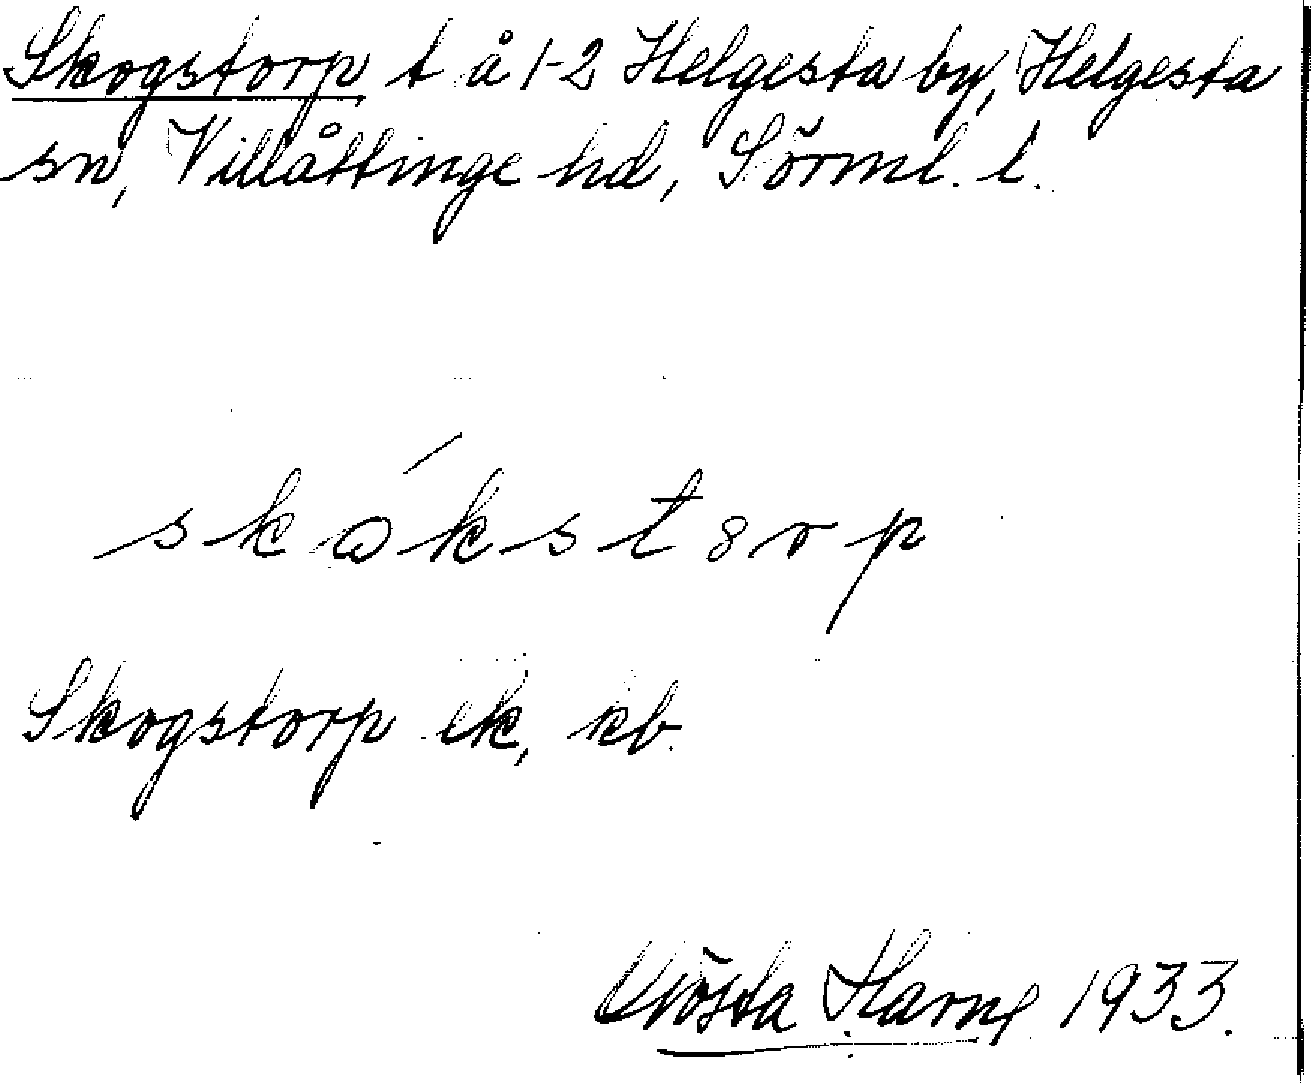 Skogstorp t å 1-2 Helgesta by, Helgesta
sn, Villåttinge hd, Sörml. l.
skákstorp
Skogstorp ek, kb.
Gösta Harne 1933.